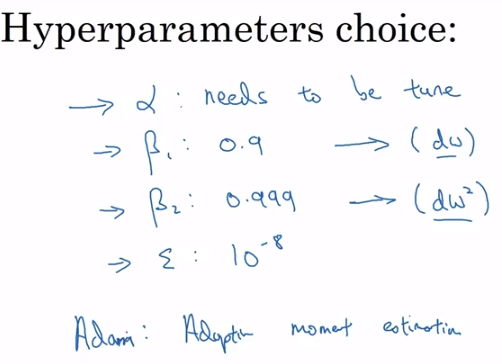 Hyperparameters choice:
→ α : needs to be tune
→ β₁ : 0.9 → (dw)
→ β₂ : 0.999 → (dw²)
→ ε : 10⁻⁸
Adam : Adaptiv moment estimation